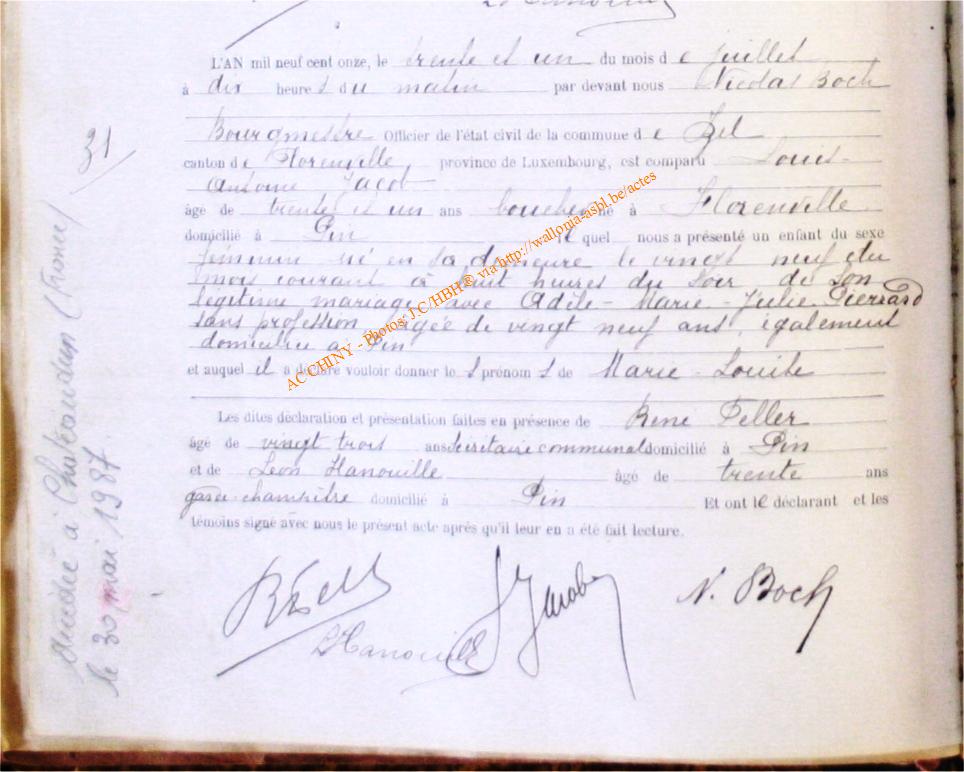 L'AN mil neuf cent onze, le trente et un du mois de juillet
à dix heures du matin par devant nous Nicolas Boch
Bourgmestre Officier de l'état civil de la commune de
canton de Florenville, province de Luxembourg, est comparu Louis-
Antoine Jacob
âgé de trente et un ans boucher né à Florenville
domicilié à Pin lequel nous a présenté un enfant du sexe
féminin né en sa demeure le vingt neuf du
mois courant à huit heures du soir de son
légitime mariage avec Adèle-Marie-Julie Pierrard
sans profession, âgée de vingt neuf ans, également
domiciliée à Pin
et auquel il a déclaré vouloir donner les prénoms de Marie-Louise
Les dites déclaration et présentation faites en présence de René Feller
âgé de vingt trois ans Secrétaire communal domicilié à Pin
et de Léon Hanouille âgé de trente ans
garde-champêtre domicilié à Pin Et ont le déclarant et les
témoins signé avec nous le présent acte après qu'il leur en a été fait lecture.
L Hanouille
Jacob
N. Boch
31
décédée à Châteaudun (France)
le 30 mai 1987.
AC CHINY - Photos: J.C/HBH® via http://wallonia-asbl.be/actes